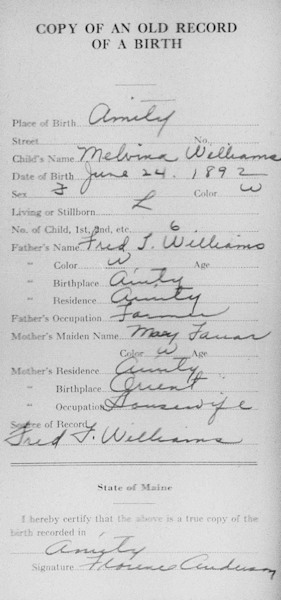 COPY OF AN OLD RECORD
OF A BIRTH
Place of Birth Amity
Street No.
Child's Name Melvina Williams
Date of Birth June 24. 1892
Sex F Color W
Living or Stillborn L
No. of Child, 1st, 2nd, etc. 6
Father's Name Fred T. Williams
" Color W Age
" Birthplace Amity
" Residence Amity
Father's Occupation Farmer
Mother's Maiden Name Mary
Color W Age
Mother's Residence Amity
" Birthplace Orient
" Occupation Housewife
Source of Record
Fred T. Williams
State of Maine
I hereby certify that the above is a true copy of the
birth recorded in
Amity
Signature Florence Anderson